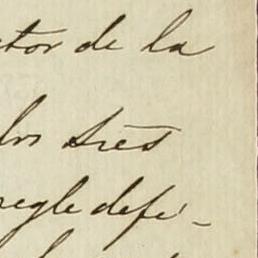 ctor de la
los tres
regle defi-